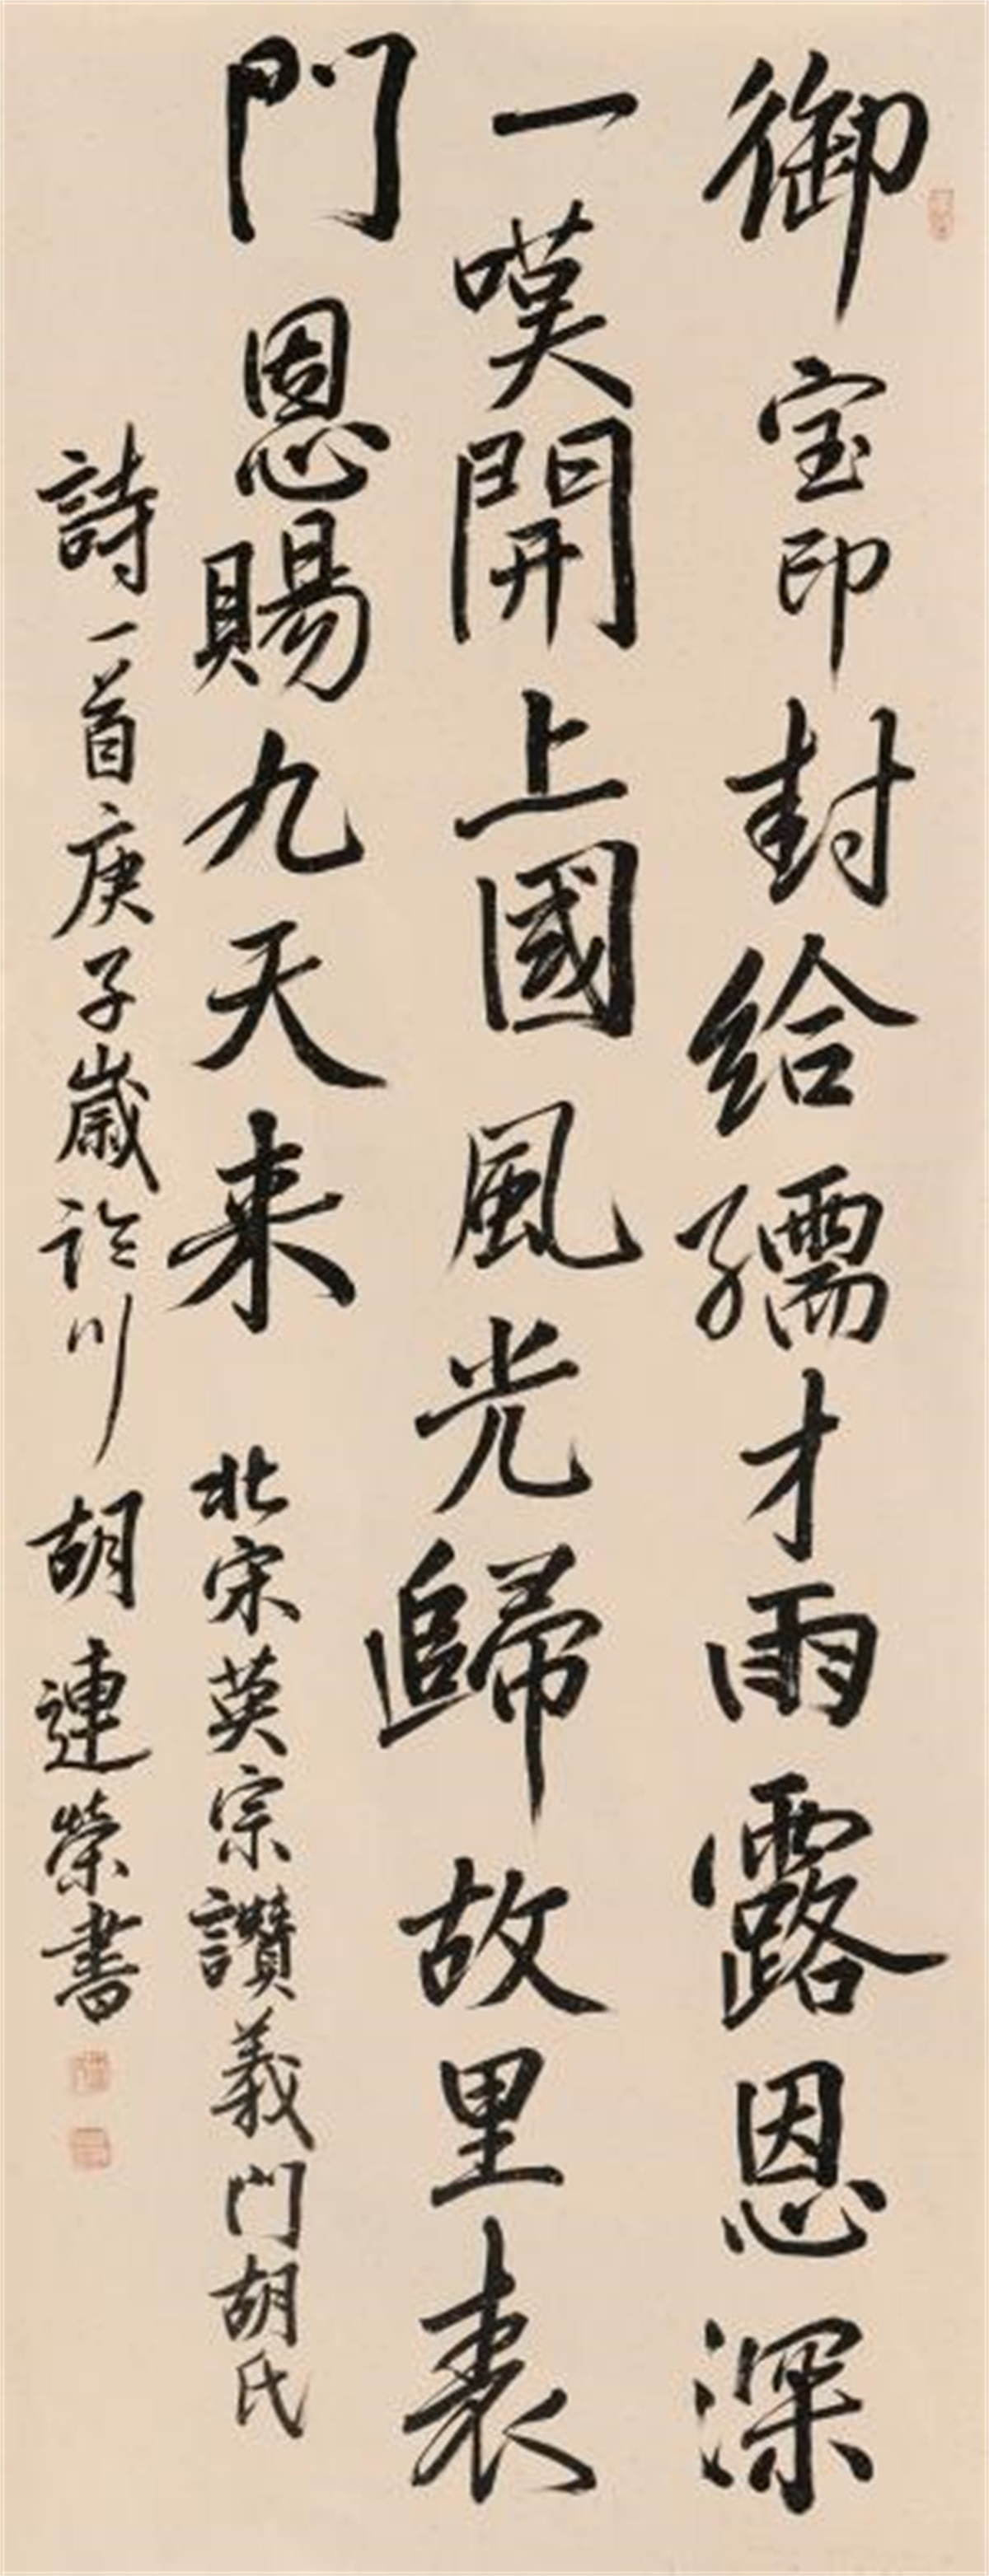 御宝印封給孺才雨露恩深
一嘆開上國風光歸故里表
門恩賜九天来 北宋英宗讚義門胡氏
詩一首庚子歲川胡連榮書